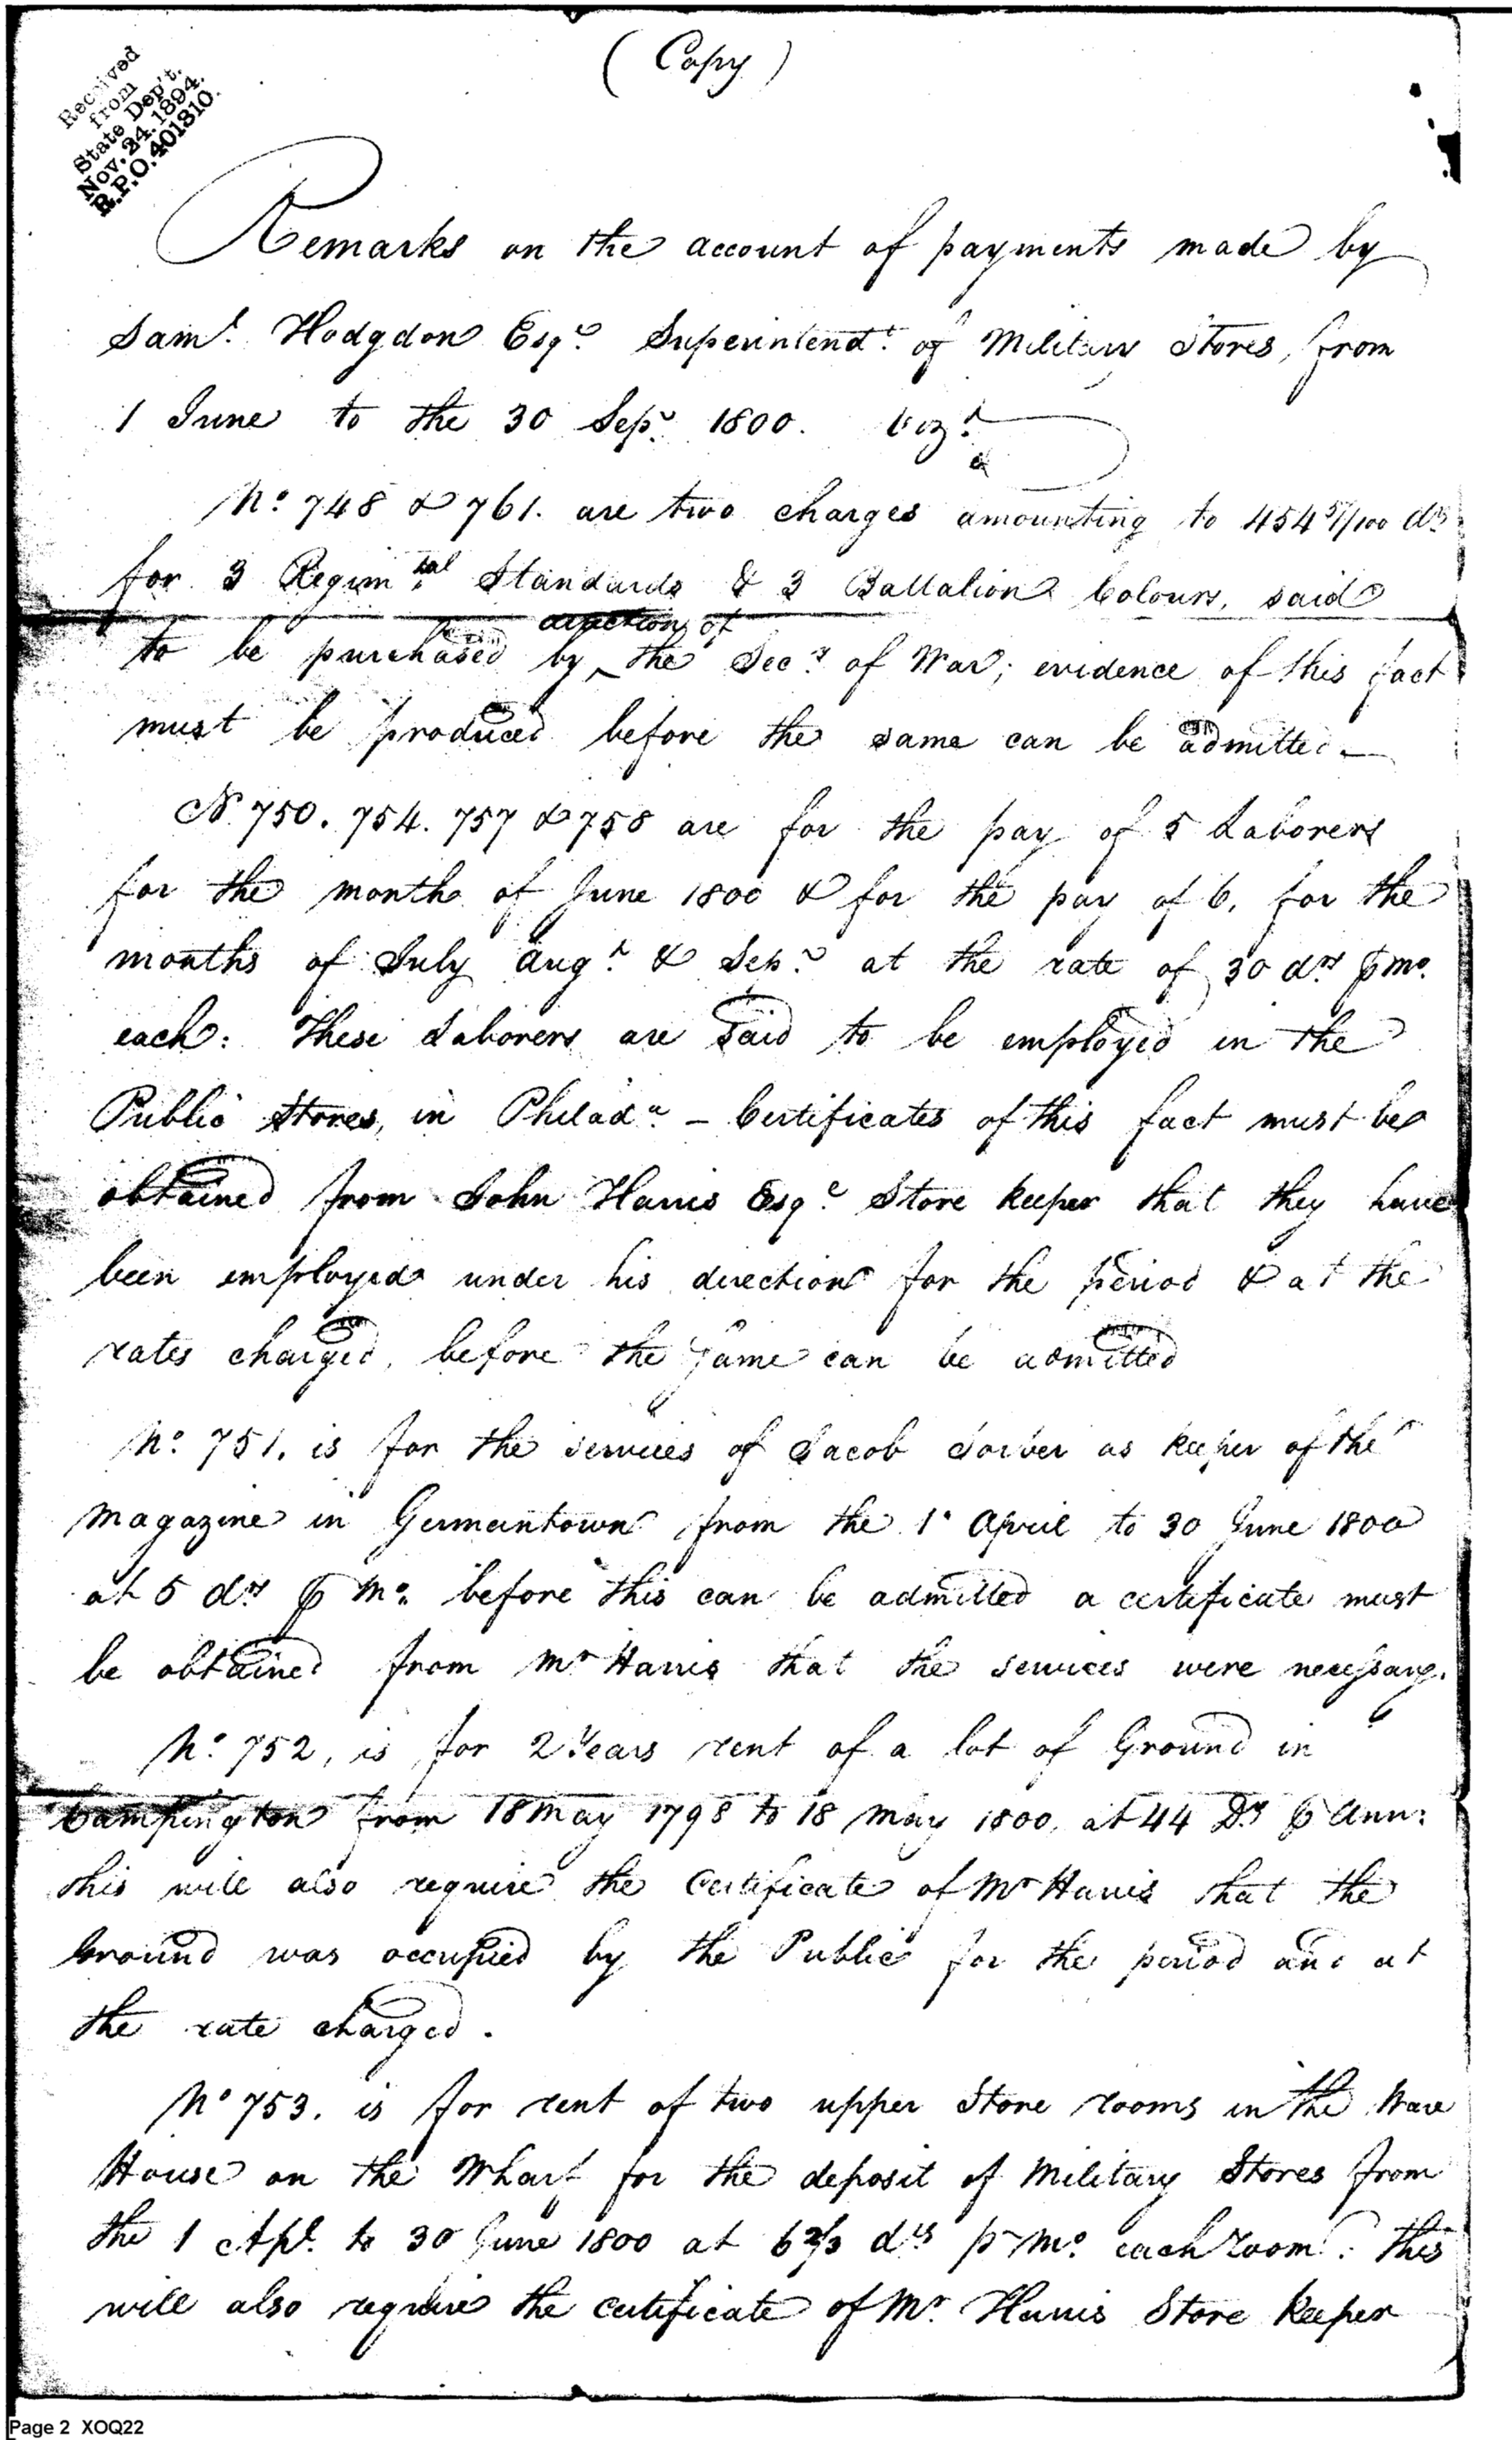 (Copy)
Received
from
State Dep't.
Nov. 24. 1894.
R.P.O. 401810.
Remarks on the account of payments made by
Saml. Hodgdon Esqr. Superintendt. of Military Stores, from
1 June to the 30 Sepr. 1800. Vizt.
No. 748 & 761. are two charges amounting to 454 51/100 drs.
for 3 Regimtal Standards & 3 Battalion Colours, said
direction of
to be purchased by ^ the Secy. of War; evidence of this fact
must be produced before the same can be admitted.
N. 750. 754. 757 & 758 are for the pay of 5 Laborers
for the month of June 1800 & for the pay of 6, for the
months of July Augt. & Sepr. at the rate of 30 drs ⅌ mo.
each: These Laborers are said to be employed in the
Public Stores, in Philada. – Certificates of this fact must be
obtained from John Harris Esqr. Store keeper that they have
been employed under his direction for the period & at the
rates charged, before the same can be admitted
No. 751. is for the services of Jacob Sorber as keeper of the
magazine in Germantown from the 1t April to 30 June 1800
at 5 drs ⅌ Mo. before this can be admitted a certificate must
be obtained from Mr Harris that the services were necessary.
No. 752, is for 2 Years rent of a lot of Ground in
Campington from 18 May 1798 to 18 May 1800, at 44 Drs ⅌ Ann:
this will also require the Certificate of Mr Harris that the
Ground was occupied by the Public for the period and at
the rate charged.
No 753. is for rent of two upper Store rooms in the Ware
House on the Wharf for the deposit of Military Stores from
the 1 Apl. to 30 June 1800 at 6 2/3 drs pr Mo. each room. this
will also require the certificate of Mr. Harris Store keeper
Page 2 XOQ22